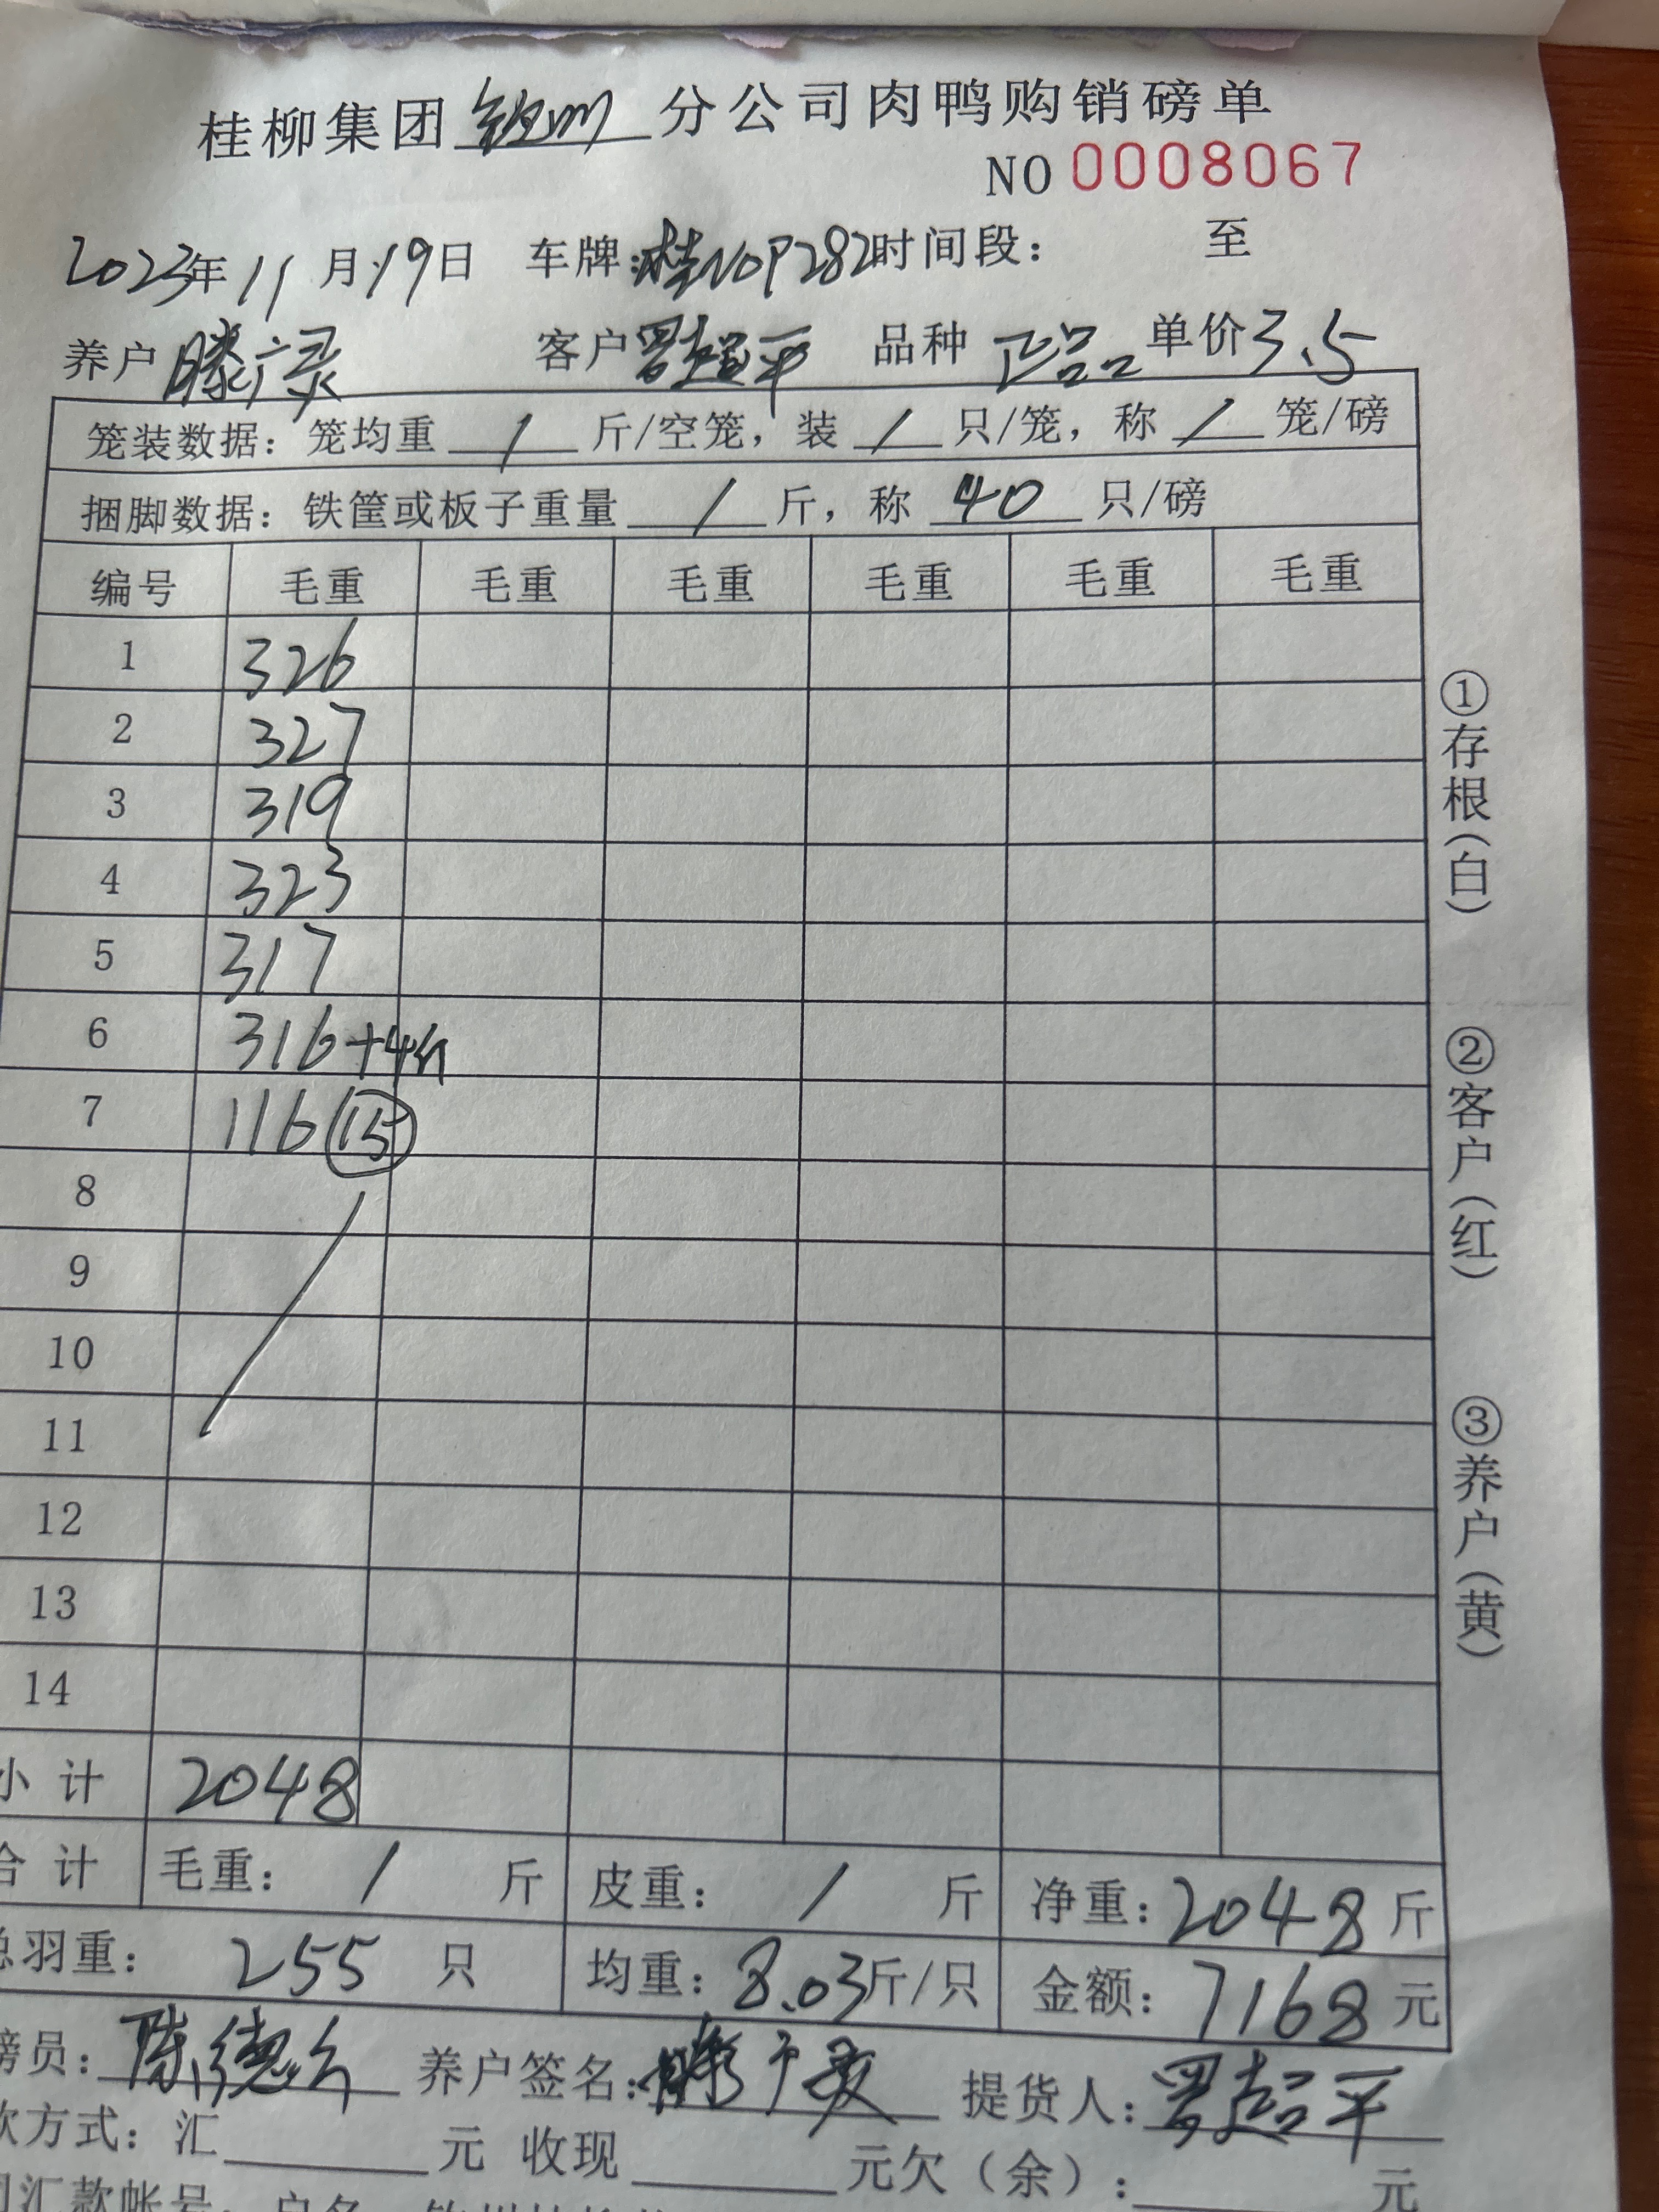 桂柳集团钦州分公司肉鸭购销磅单
NO 0008067
2023年11月19日 车牌:桂NOP282时间段: 至
养户滕广录 客户罗超平 品种 正品 单价3.5
笼装数据: 笼均重 / 斤/空笼, 装 / 只/笼, 称 / 笼/磅
捆脚数据: 铁筐或板子重量 / 斤, 称 40 只/磅
编号 毛重 毛重 毛重 毛重 毛重 毛重
1 326
2 327
3 319
4 323
5 317
6 316+4斤
7 116 ⑮
8
9
10
11
12
13
14
小计 2048
合计 毛重: / 斤 皮重: / 斤 净重: 2048 斤
总羽重: 255 只 均重: 8.03斤/只 金额: 7168 元
磅员: 陈德 养户签名: 滕广 提货人: 罗超平
款方式: 汇 元 收现 元欠(余): 元
汇款帐号: 户名
①存根(白)
②客户(红)
③养户(黄)